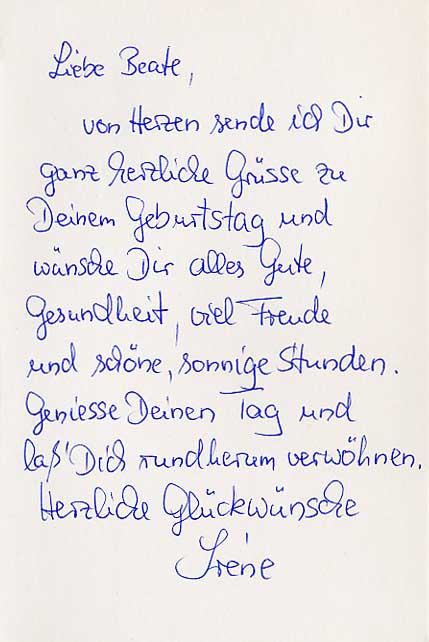 Liebe Beate,
von Herzen sende ich Dir
ganz herzliche Grüsse zu
Deinem Geburtstag und
wünsche Dir alles Gute,
Gesundheit, viel Freude
und schöne, sonnige Stunden.
Geniesse Deinen Tag und
laß' Dich rundherum verwöhnen.
Herzliche Glückwünsche
Irene